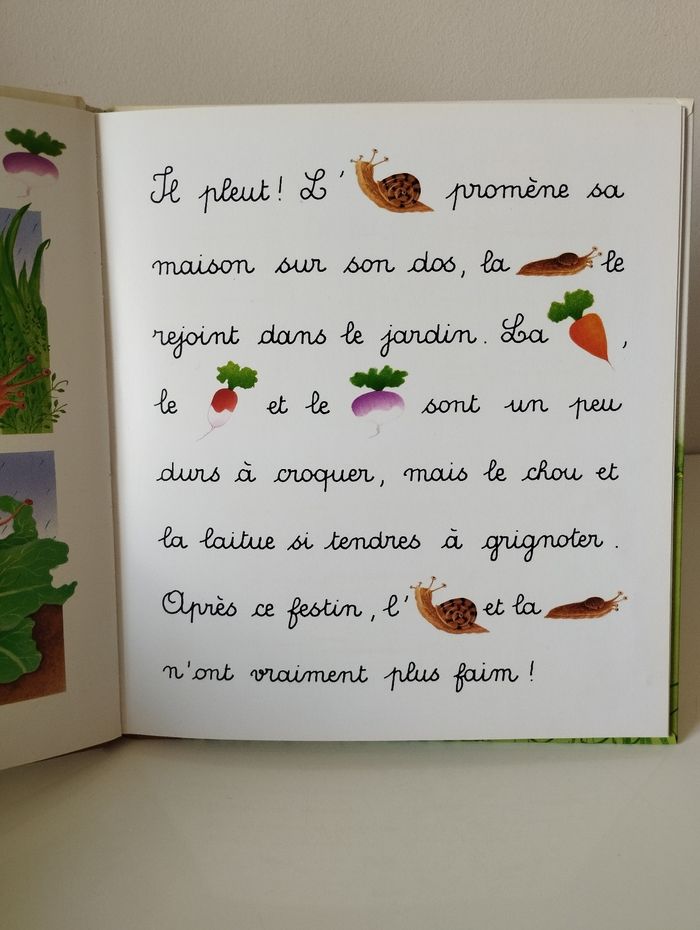 Il pleut! L' promène sa
maison sur son dos, la le
rejoint dans le jardin. La ,
le et le sont un peu
durs à croquer, mais le chou et
la laitue si tendres à grignoter.
Après ce festin, l' et la
n'ont vraiment plus faim!